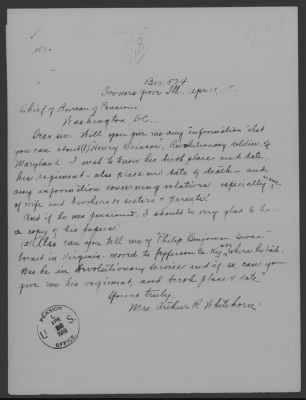 Box 534
Downers Grove Ill., Apr. 19
Chief of Bureau of Pensions,
Washington D.C.,
Dear sir: Will you give me any information that
you can about (1) Henry Revolutionary soldier of
Maryland. I wish to know his birth place and date,
his regiment - also place and date of death - and
any information concerning relations. especially name
of wife and brothers or sisters & Parents.
And if he was pensioned, I should be very glad to have
a copy of his papers.
(2) Also can you tell me of "Philip Benjamin
born in Virginia - moved to Jefferson Co. Ky where he died.
Was he in Revolutionary service and if so, can you
give me his regiment, and birth place & date"
Yours truly,
Mrs. Arthur R. Whitehorn.
PENSION
U S
APR
OFFICE